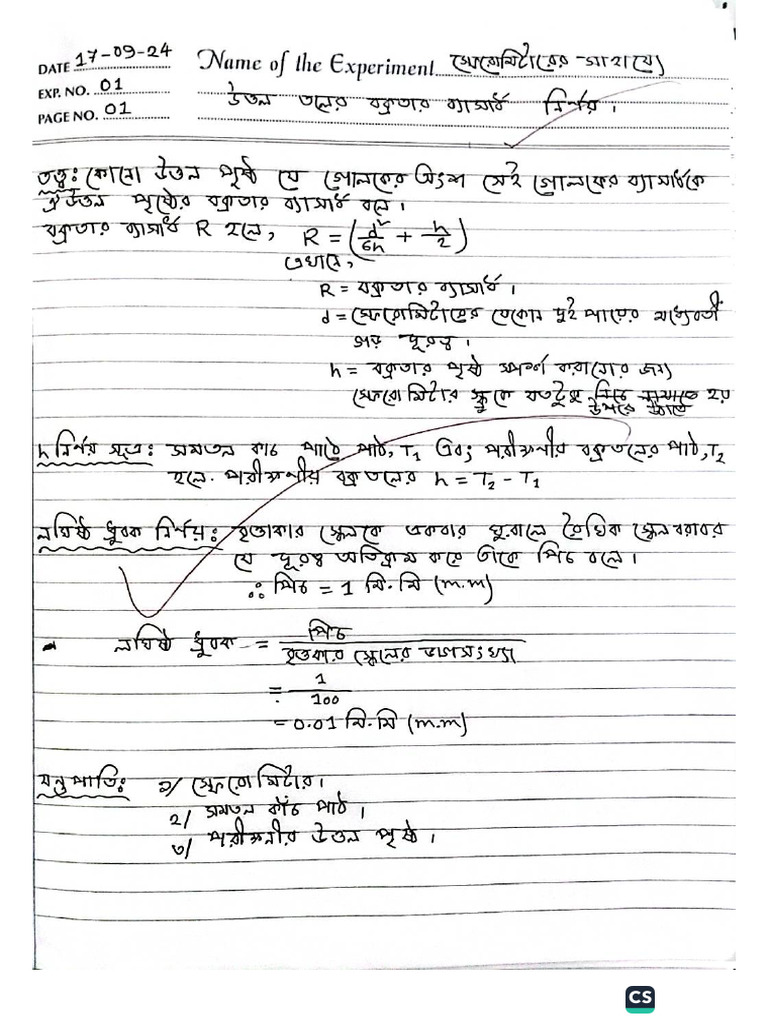 DATE 17-09-24 Name of the Experiment স্ফেরোমিটারের সাহায্যে
EXP. NO. 01 উত্তল তলের বক্রতার ব্যাসার্ধ নির্ণয়।
PAGE NO. 01
তত্ত্ব: কোনো উত্তল পৃষ্ঠ যে গোলকের অংশ সেই গোলকের ব্যাসার্ধকে
ঐ উত্তল পৃষ্ঠের বক্রতার ব্যাসার্ধ বলে।
বক্রতার ব্যাসার্ধ R হলে, R = (d²/6h + h/2)
এখানে,
R = বক্রতার ব্যাসার্ধ।
d = স্ফেরোমিটারের যেকোন দুই পায়ের মধ্যবর্তী
গড় দূরত্ব।
h = বক্রতার পৃষ্ঠ স্পর্শ করানোর জন্য
স্ফেরোমিটার স্ক্রুকে যতটুকু নিচে নামাতে হয়
উপরে উঠাতে
h নির্ণয় সূত্র: সমতল কাচ পাতে পাঠ, T₁ এবং পরীক্ষণীয় বক্রতলের পাঠ, T₂
হলে. পরীক্ষণীয় বক্রতলের h = T₂ - T₁
লঘিষ্ঠ ধ্রুবক নির্ণয়: বৃত্তাকার স্কেলকে একবার ঘুরালে রৈখিক স্কেল বরাবর
যে দূরত্ব অতিক্রম করে তাকে পিচ বলে।
∴ পিচ = 1 মি.মি (m.m)
লঘিষ্ঠ ধ্রুবক = পিচ
বৃত্তাকার স্কেলের ভাগসংখ্যা
= 1
100
= 0.01 মি.মি (m.m)
যন্ত্রপাতি: ১/ স্ফেরোমিটার।
২/ সমতল কাঁচ পাঠ।
৩/ পরীক্ষনীয় উত্তল পৃষ্ঠ।
CS